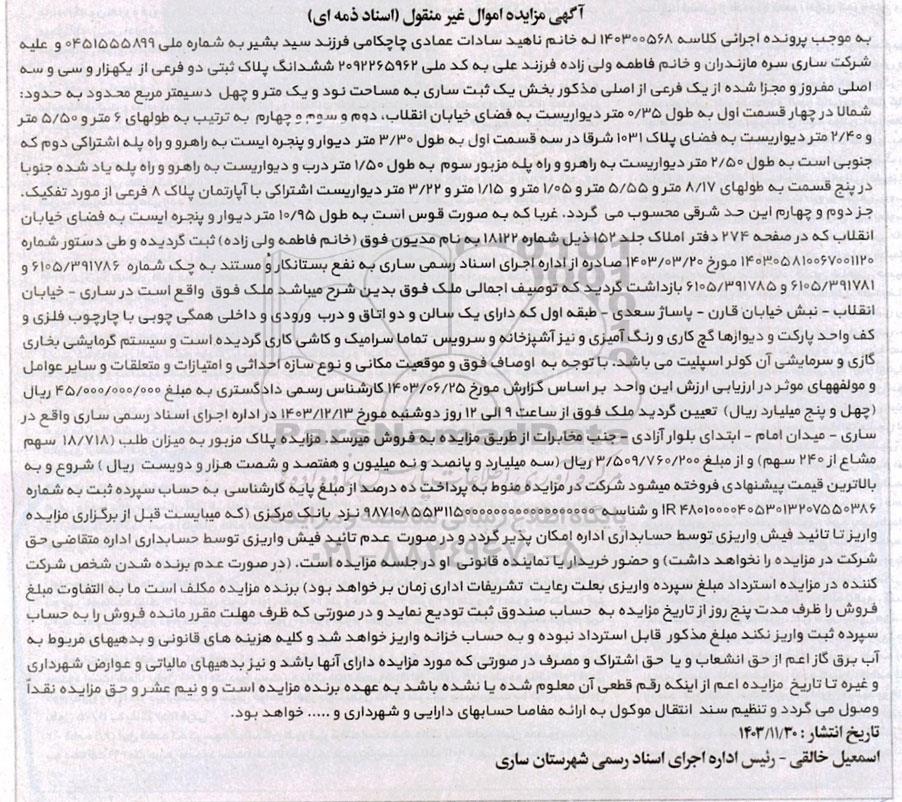 آگهی مزایده اموال غیر منقول (اسناد ذمه ای)
به موجب پرونده اجرائی کلاسه ۱۴۰۳۰۰۵۶۸ له خانم ناهید سادات عمادی چاچکامی فرزند سید بشیر به شماره ملی ۰۴۵۱۵۵۵۸۹۹ و علیه
شرکت ساری سره مازندران و خانم فاطمه ولی زاده فرزند علی به کد ملی ۲۰۹۲۲۶۵۹۶۲ ششدانگ پلاک ثبتی دو فرعی از یکهزار و سی و سه
اصلی مفروز و مجزا شده از یک فرعی از اصلی مذکور بخش یک ثبت ساری به مساحت نود و یک متر و چهل دسیمتر مربع محدود به حدود:
شمالا در چهار قسمت اول به طول ۰/۳۵ متر دیواریست به فضای خیابان انقلاب، دوم و سوم و چهارم به ترتیب به طولهای ۶ متر و ۵/۵۰ متر
و ۲/۴۰ متر دیواریست به فضای پلاک ۱۰۳۱ شرقا در سه قسمت اول به طول ۳/۳۰ متر دیوار و پنجره ایست به راهرو و راه پله اشتراکی دوم که
جنوبی است به طول ۲/۵۰ متر دیواریست به راهرو و راه پله مزبور سوم به طول ۱/۵۰ متر درب و دیواریست به راهرو و راه پله یاد شده جنوبا
در پنج قسمت به طولهای ۸/۱۷ متر و ۵/۵۵ متر و ۱/۰۵ متر و ۱/۱۵ متر و ۳/۲۲ متر دیواریست اشتراکی با آپارتمان پلاک ۸ فرعی از مورد تفکیک.
جز دوم و چهارم این حد شرقی محسوب می گردد. غربا که به صورت قوس است به طول ۱۰/۹۵ متر دیوار و پنجره ایست به فضای خیابان
انقلاب که در صفحه ۲۷۴ دفتر املاک جلد ۱۵۲ ذیل شماره ۱۸۱۲۲ به نام مدیون فوق (خانم فاطمه ولی زاده) ثبت گردیده و طی دستور شماره
۱۴۰۳۰۵۸۱۰۰۶۷۰۰۱۱۲۰ مورخ ۱۴۰۳/۰۳/۲۰ صادره از اداره اجرای اسناد رسمی ساری به نفع بستانکار و مستند به چک شماره ۶۱۰۵/۳۹۱۷۸۶ و
۶۱۰۵/۳۹۱۷۸۱ و ۶۱۰۵/۳۹۱۷۸۵ بازداشت گردید که توصیف اجمالی ملک فوق بدین شرح میباشد ملک فوق واقع است در ساری - خیابان
انقلاب - نبش خیابان قارن - پاساژ سعدی - طبقه اول که دارای یک سالن و دو اتاق و درب ورودی و داخلی همگی چوبی با چارچوب فلزی و
کف واحد پارکت و دیوارها گچ کاری و رنگ آمیزی و نیز آشپزخانه و سرویس تماما سرامیک و کاشی کاری گردیده است و سیستم گرمایشی بخاری
گازی و سرمایشی آن کولر اسپلیت می باشد. با توجه به اوصاف فوق و موقعیت مکانی و نوع سازه احداثی و امتیازات و متعلقات و سایر عوامل
و مولفههای موثر در ارزیابی ارزش این واحد بر اساس گزارش مورخ ۱۴۰۳/۰۶/۲۵ کارشناس رسمی دادگستری به مبلغ ۴۵/۰۰۰/۰۰۰/۰۰۰ ریال
(چهل و پنج میلیارد ریال) تعیین گردید ملک فوق از ساعت ۹ الی ۱۲ روز دوشنبه مورخ ۱۴۰۳/۱۲/۱۳ در اداره اجرای اسناد رسمی ساری واقع در
ساری - میدان امام - ابتدای بلوار آزادی - جنب مخابرات از طریق مزایده به فروش میرسد. مزایده پلاک مزبور به میزان طلب (۱۸/۷۱۸ سهم
مشاع از ۲۴۰ سهم) و از مبلغ ۳/۵۰۹/۷۶۰/۲۰۰ ریال (سه میلیارد و پانصد و نه میلیون و هفتصد و شصت هزار و دویست ریال ) شروع و به
بالاترین قیمت پیشنهادی فروخته میشود شرکت در مزایده منوط به پرداخت ده درصد از مبلغ پایه کارشناسی به حساب سپرده ثبت به شماره
IR ۴۸۰۱۰۰۰۰۴۰۵۳۰۱۳۲۰۷۵۵۰۳۸۶ و شناسه نزد بانک مرکزی (که میبایست قبل از برگزاری مزایده
واریز تا تائید فیش واریزی توسط حسابداری اداره امکان پذیر گردد و در صورت عدم تائید فیش واریزی توسط حسابداری اداره متقاضی حق
شرکت در مزایده را نخواهد داشت) و حضور خریدار یا نماینده قانونی او در جلسه مزایده است. (در صورت عدم برنده شدن شخص شرکت
کننده در مزایده استرداد مبلغ سپرده واریزی بعلت رعایت تشریفات اداری زمان بر خواهد بود) برنده مزایده مکلف است ما به التفاوت مبلغ
فروش را ظرف مدت پنج روز از تاریخ مزایده به حساب صندوق ثبت تودیع نماید و در صورتی که ظرف مهلت مقرر مانده فروش را به حساب
سپرده ثبت واریز نکند مبلغ مذکور قابل استرداد نبوده و به حساب خزانه واریز خواهد شد و کلیه هزینه های قانونی و بدهیهای مربوط به
آب برق گاز اعم از حق انشعاب و یا حق اشتراک و مصرف در صورتی که مورد مزایده دارای آنها باشد و نیز بدهیهای مالیاتی و عوارض شهرداری
و غیره تا تاریخ مزایده اعم از اینکه رقم قطعی آن معلوم شده یا نشده باشد به عهده برنده مزایده است و و نیم عشر و حق مزایده نقداً
وصول می گردد و تنظیم سند انتقال موکول به ارائه مفاصا حسابهای دارایی و شهرداری و ..... خواهد بود.
تاریخ انتشار : ۱۴۰۳/۱۱/۳۰
اسمعیل خالقی - رئیس اداره اجرای اسناد رسمی شهرستان ساری
ParsNamadData
پایگاه اطلاع رسانی مناقصه و مزایده
۰۲۱-۸۸۳۴۹۶۷۰-۵